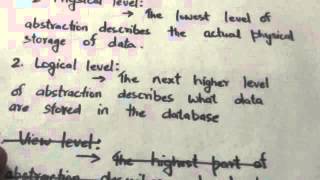 Physical level:
→ The lowest level of
abstraction describes the actual physical
storage of data.
2. Logical level:
→ The next higher level
of abstraction describes what data
are stored in the database
View level:
→ The highest part of
abstraction